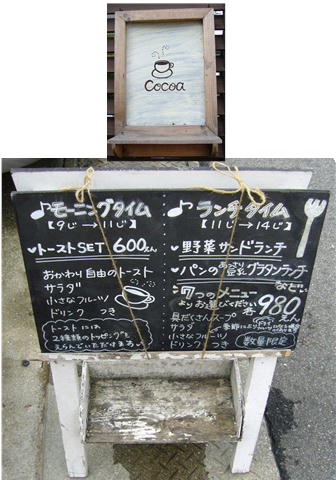 Cocoa
モーニングタイム
【9じ→11じ】
トーストSET 600えん
おかわり自由のトースト
サラダ
小さなフルーツ
ドリンク つき
トーストには
2種類のトッピングを
えらんでいただけまーす
ランチタイム
【11じ→14じ】
野菜サンドランチ
パンのあっさり豆乳グラタンランチ
などなど
7つのメニュー
よりお選びください
各980えん
具だくさんスープ
サラダ
小さなフルーツ
ドリンク つき
数量限定